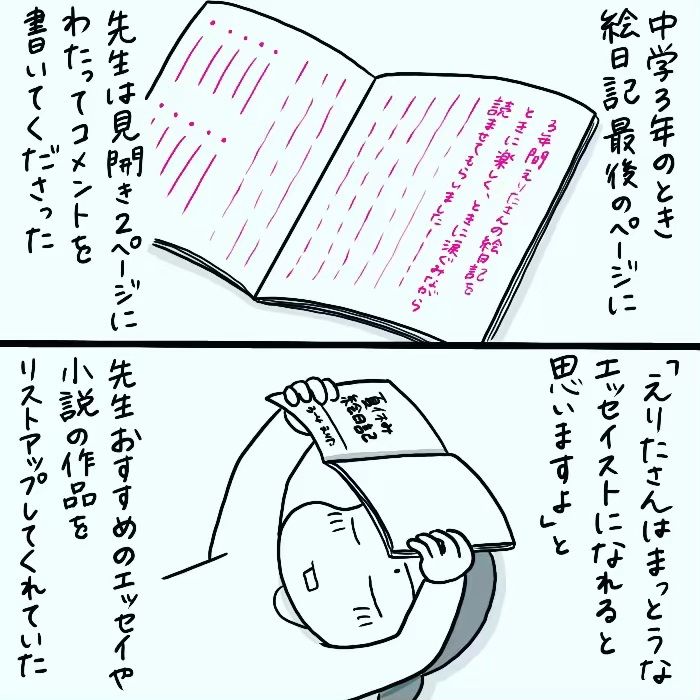 中学3年のとき
絵日記 最後のページに
3年間えりたさんの絵日記を
ときに楽しく、ときに涙ぐみながら
読ませてもらいました!
先生は見開き2ページに
わたってコメントを
書いてくださった
「えりたさんはまっとうな
エッセイストになれると
思いますよ」と
夏休み
絵日記
先生おすすめのエッセイや
小説の作品を
リストアップしてくれていた